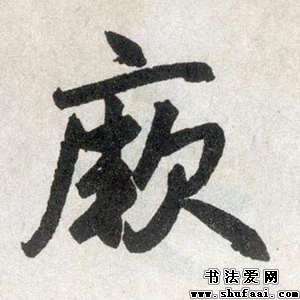 厥
书法爱网
www.shufaai.com